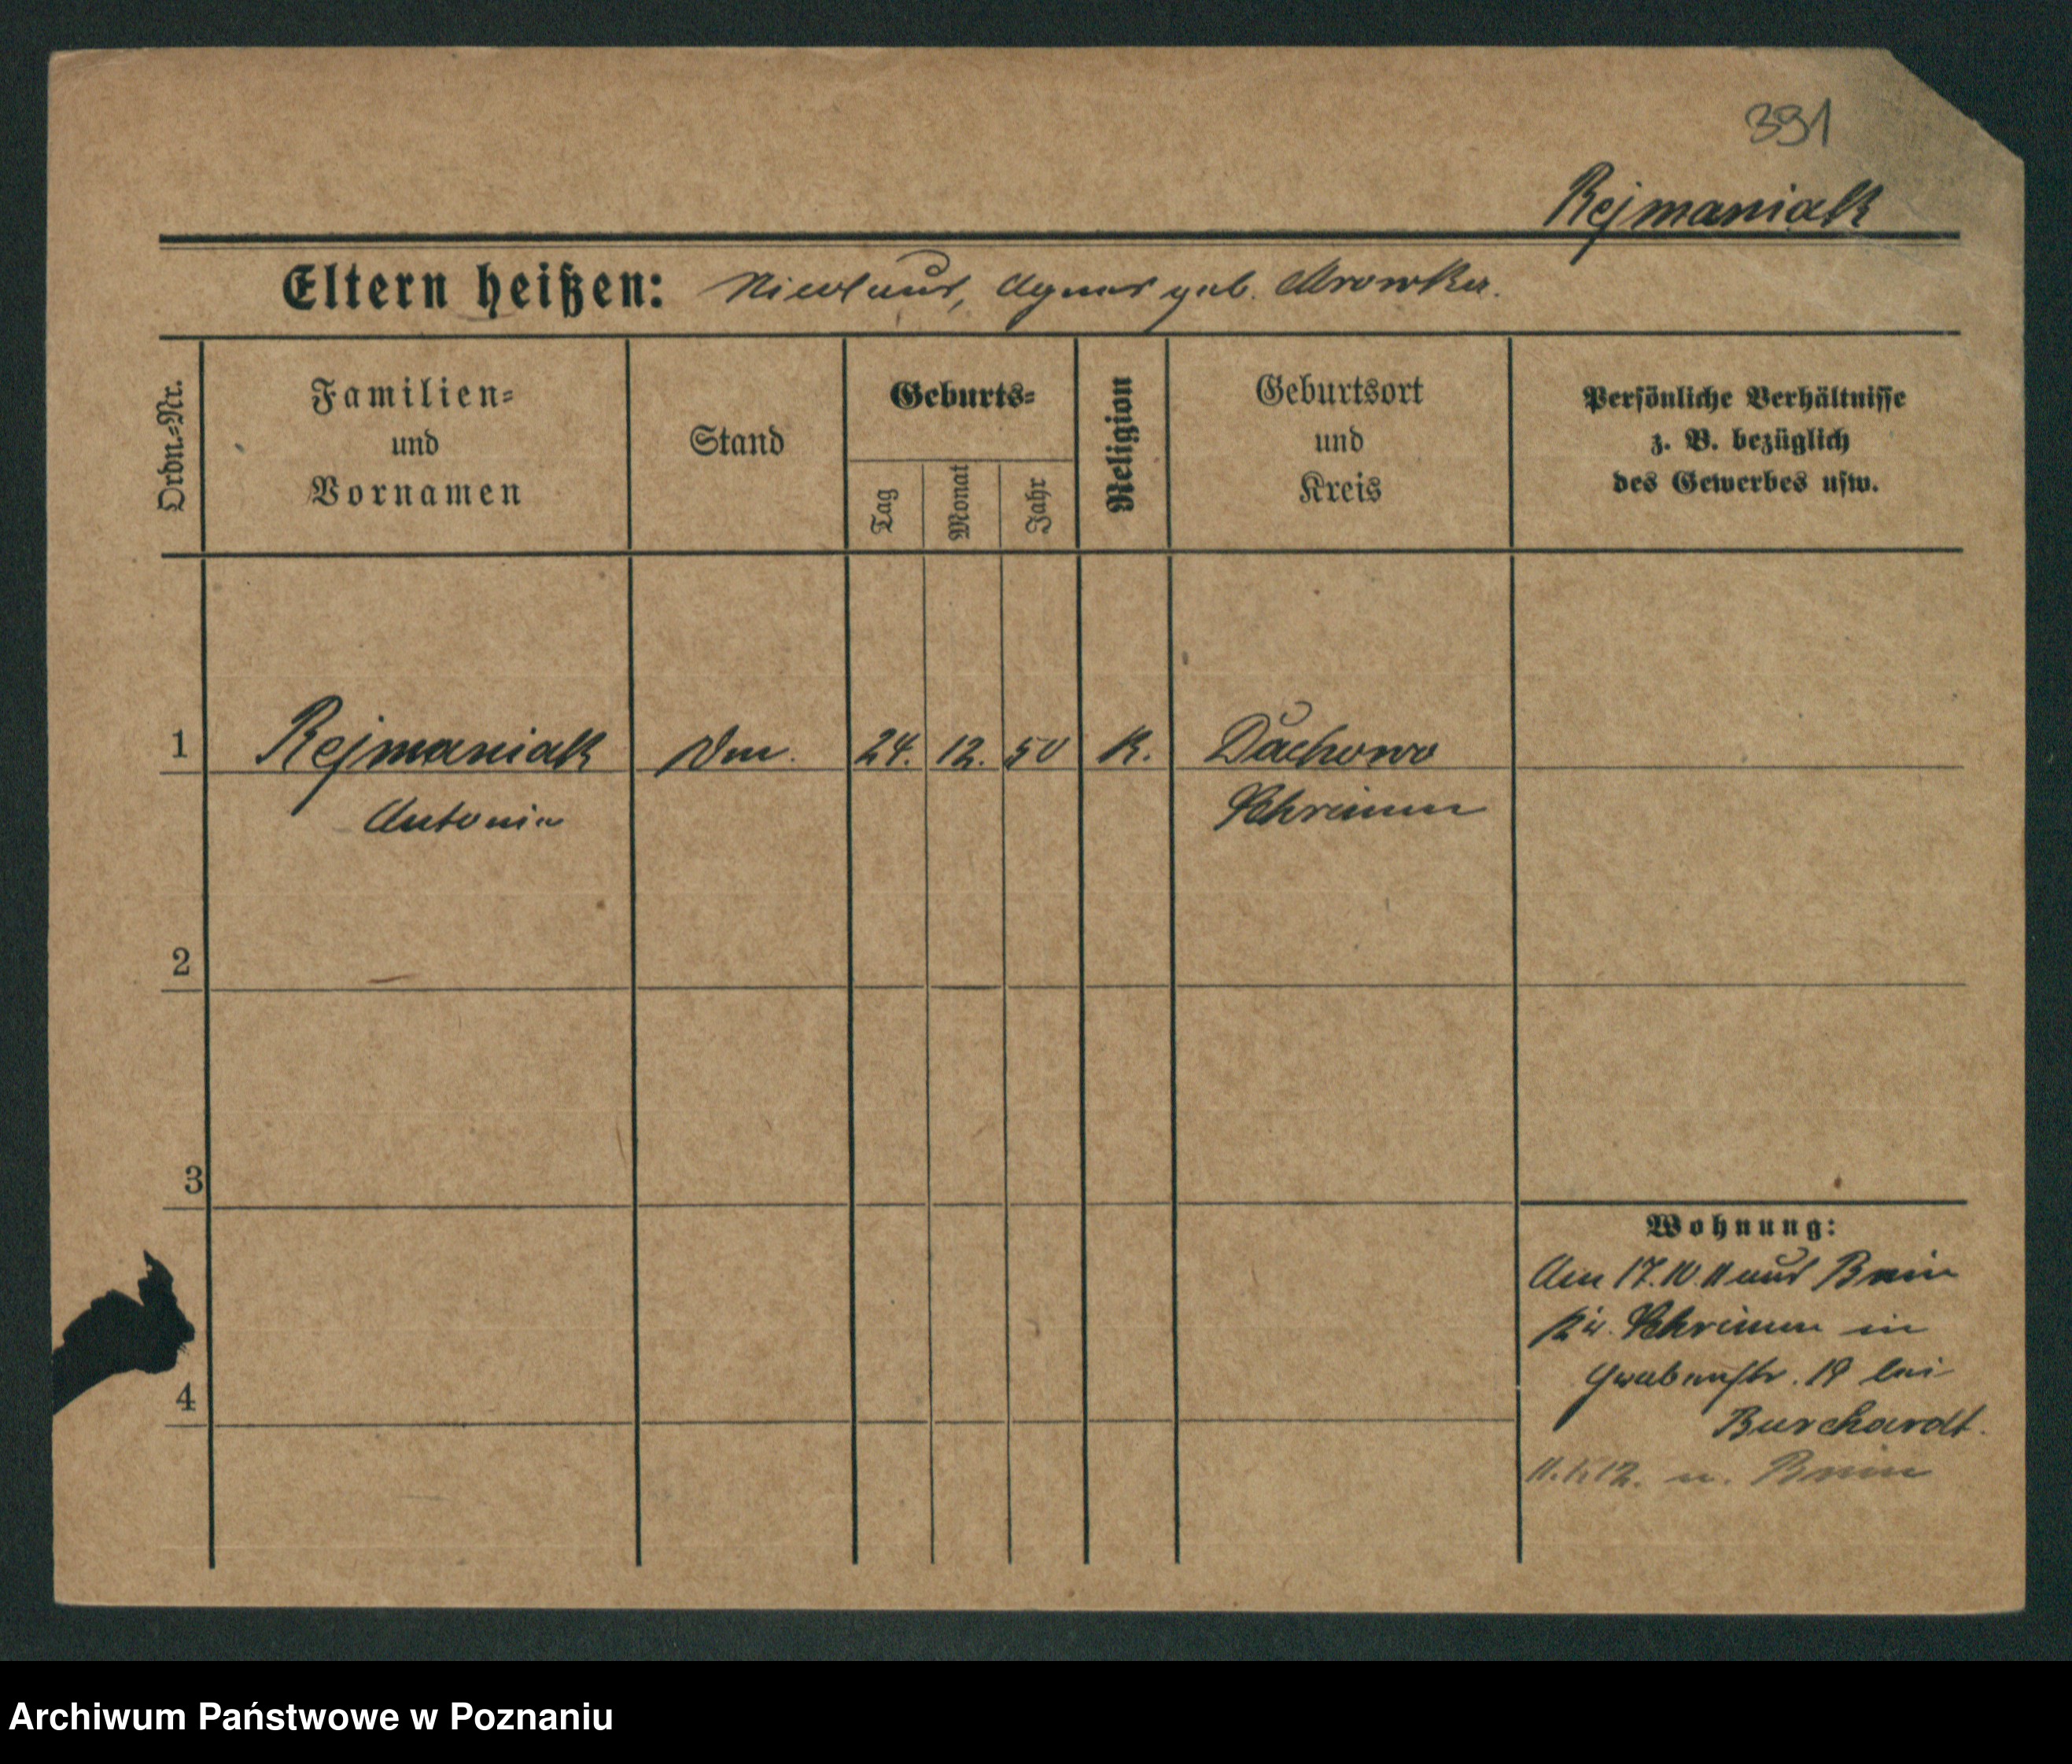 391
Rejmaniak
Eltern heißen: Nicolaus, Agnes geb. Mrowka.
Ordn.=Nr.
Familien=
und
Vornamen
Stand
Geburts=
Tag
Monat
Jahr
Religion
Geburtsort
und
Kreis
Persönliche Verhältnisse
z. B. bezüglich
des Gewerbes usw.
1 Rejmaniak 24. 12. 50 K. Dachowo
Antonia Schrimm
2
3
4
Wohnung:
Am 17.10.11 aus Bnin
Kr. Schrimm in
Grabenstr. 19 bei
Burchardt.
n. Bnin
Archiwum Państwowe w Poznaniu